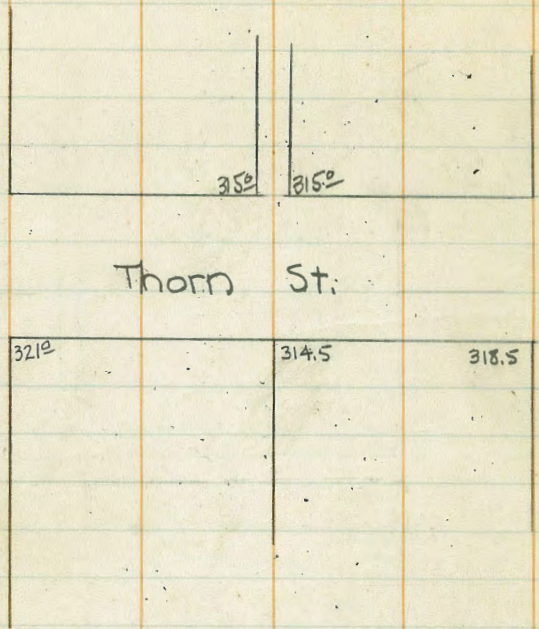 315.0 315.0
Thorn St.
321.0 314.5 318.5